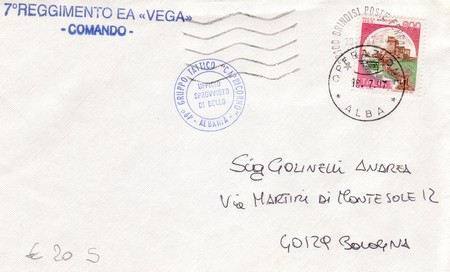 7°REGGIMENTO EA «VEGA»
- COMANDO -
GRUPPO TATTICO "CAPRICORNO"
UFFICIO
SPROVVISTO
DI BOLLO
- ALBANIA -
BRINDISI POSTE
800
OPERAZIONE
* ALBA *
Sig GOLINELLI ANDREA
Via MARTIRI DI MONTESOLE 12
40129 BOLOGNA
€ 20 S